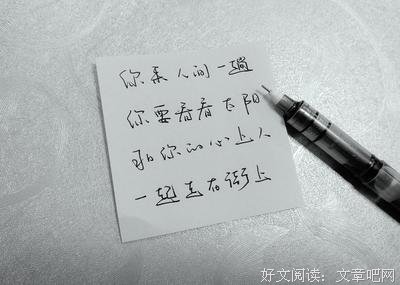 你来人间一趟
你要看看太阳
和你的心上人
一起走在街上
好文阅读：文章吧网